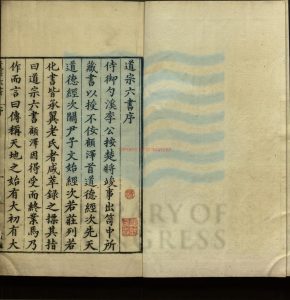 道宗六書序
侍御勺溪李公按楚將竣事出笥中所
藏書以授不佞顧澤首道德經次先天
道德經次關尹子文始經次若莊列若
化書皆承翼老氏者咸萃録之摽其指
曰道宗六書顧澤因得受而終業焉乃
作而言曰傳稱天地之始有大初有大
LIBRARY OF
CONGRESS